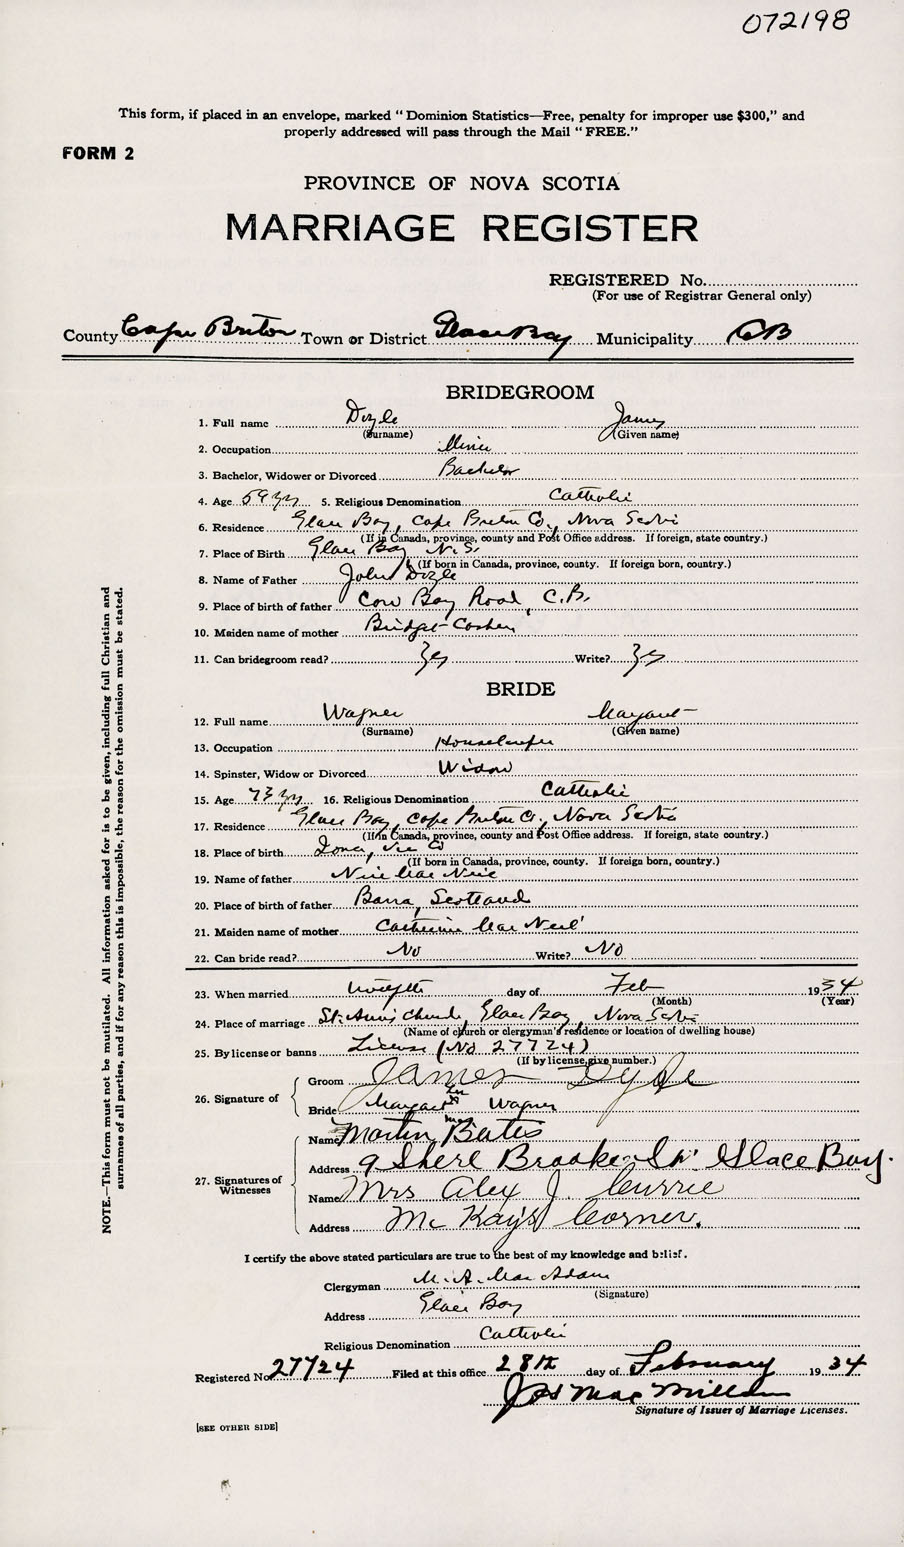 072198
This form, if placed in an envelope, marked “ Dominion Statistics—Free, penalty for improper use $300,” and
properly addressed will pass through the Mail “ FREE.”
FORM 2
PROVINCE OF NOVA SCOTIA
MARRIAGE REGISTER
REGISTERED No.
(For use of Registrar General only)
County Cape Briton Town or District Glace Bay Municipality CB
BRIDEGROOM
1. Full name Doyle James
(Surname) (Given name)
2. Occupation Miner
3. Bachelor, Widower or Divorced Bachelor
4. Age 59 yrs 5. Religious Denomination Catholic
6. Residence Glace Bay, Cape Breton Co., Nova Scotia
(If in Canada, province, county and Post Office address. If foreign, state country.)
7. Place of Birth Glace Bay N.S.
(If born in Canada, province, county. If foreign born, country.)
8. Name of Father John Doyle
9. Place of birth of father Cow Bay Road, C.B.
10. Maiden name of mother Bridget
11. Can bridegroom read? Yes Write? Yes
BRIDE
12. Full name Wagner Margaret
(Surname) (Given name)
13. Occupation Housekeeper
14. Spinster, Widow or Divorced Widow
15. Age 73 yrs 16. Religious Denomination Catholic
17. Residence Glace Bay, Cape Breton Co., Nova Scotia
(If in Canada, province, county and Post Office address. If foreign, state country.)
18. Place of birth Iona, Vic Co
(If born in Canada, province, county. If foreign born, country.)
19. Name of father Neil Mac Neil
20. Place of birth of father Barra, Scotland
21. Maiden name of mother Catherine Mac Neil
22. Can bride read? No Write? No
23. When married twelfth day of Feb 1934
(Month) (Year)
24. Place of marriage St. Ann's Church, Glace Bay, Nova Scotia
(Name of church or clergyman's residence or location of dwelling house)
25. By license or banns License (No 27724)
(If by license, give number.)
26. Signature of
Groom James Dyle
Bride Margaret her X mark Wagner
27. Signatures of Witnesses
Name Martin Bates
Address 9 Shere Brooke St. Glace Bay.
Name Mrs Alex J. Currie
Address McKay's Corner.
I certify the above stated particulars are true to the best of my knowledge and belief.
Clergyman M. A. Mac Adam
(Signature)
Address Glace Bay
Religious Denomination Catholic
Registered No 27724 Filed at this office 28th day of February 1934
Jas Mac Millan
Signature of Issuer of Marriage Licenses.
[SEE OTHER SIDE]
NOTE.—This form must not be mutilated. All information asked for is to be given, including full Christian and
surnames of all parties, and if for any reason this is impossible, the reason for the omission must be stated.